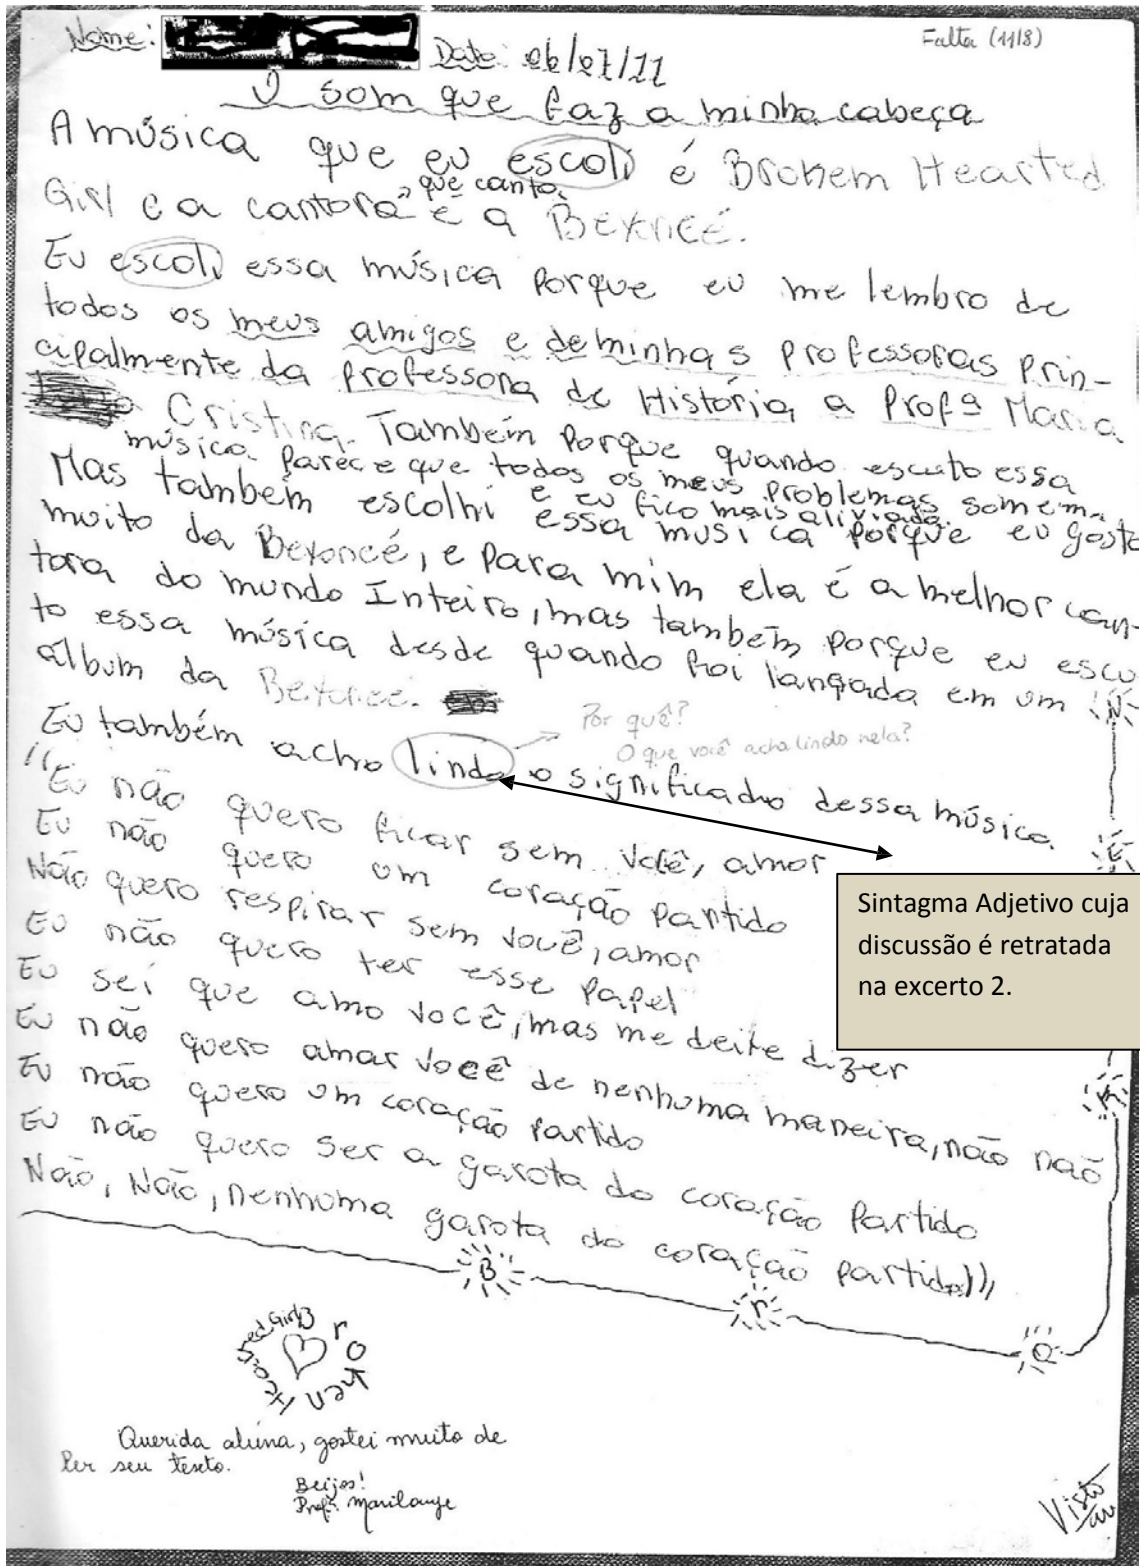 Nome: Data: 06/07/11
Falta (11/8)
O som que faz a minha cabeça
A música que eu escoli é Brokem Hearted
Girl e a cantora que canta é a Beyoncé.
Eu escoli essa música porque eu me lembro de
todos os meus amigos e de minhas professoras prin-
cipalmente da professora de História, a Profª Maria
Cristina. Também porque quando escuto essa
música parece que todos os meus problemas somem
e eu fico mais aliviada.
Mas também escolhi essa musica porque eu gosto
muito da Beyoncé, e para mim ela é a melhor can-
tora do mundo Inteiro, mas também porque eu escu-
to essa música desde quando foi lançada em um
álbum da Beyoncé.
Por quê?
O que você acha lindo nela?
Eu também acho lindo o significado dessa música
"Eu não quero ficar sem você, amor
Eu não quero um coração partido
Não quero respirar sem você, amor
Eu não quero ter esse papel
Eu sei que amo você, mas me deite dizer
Eu não quero amar você de nenhuma maneira, não não
Eu não quero um coração partido
Eu não quero ser a garota do coração partido
Não, Não, nenhuma garota do coração partido"
Sintagma Adjetivo cuja
discussão é retratada
na excerto 2.
B r o k e N
Broken Hearted Girl
Querida aluna, gostei muito de
ler seu texto.
Beijos!
Profª. Marilauje
Visto